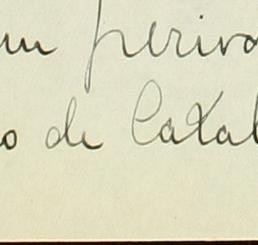 um periva
o de Catal